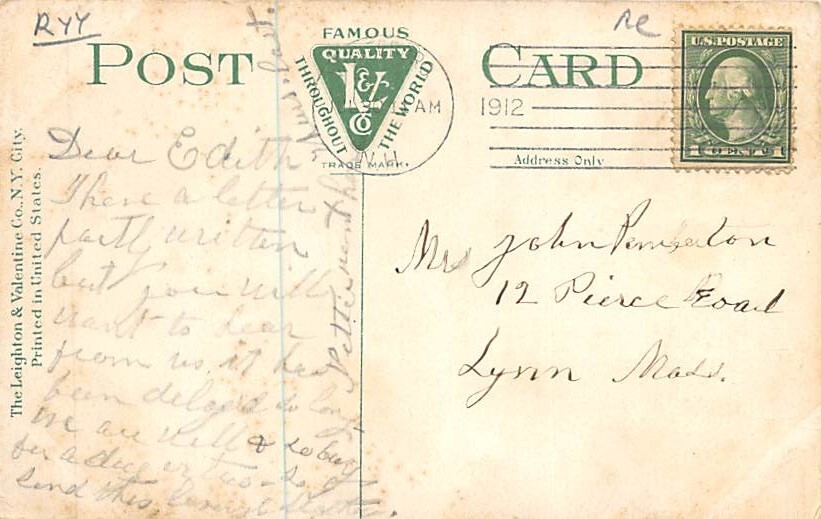 RYY
Ae
POST CARD
FAMOUS
QUALITY
THROUGHOUT THE WORLD
L&V
CO
TRADE MARK.
AM
N.H.
1912
U.S. POSTAGE
1 CENT 1
Address Only
The Leighton & Valentine Co., N.Y. City.
Printed in United States.
Dear Edith
I have a letter
partly written
but you will
want to hear
from us, it has
been delayed so long
We are well & so busy
for a day or two - so I
send this.
Mrs John Pemberton
12 Pierce Road
Lynn Mass.